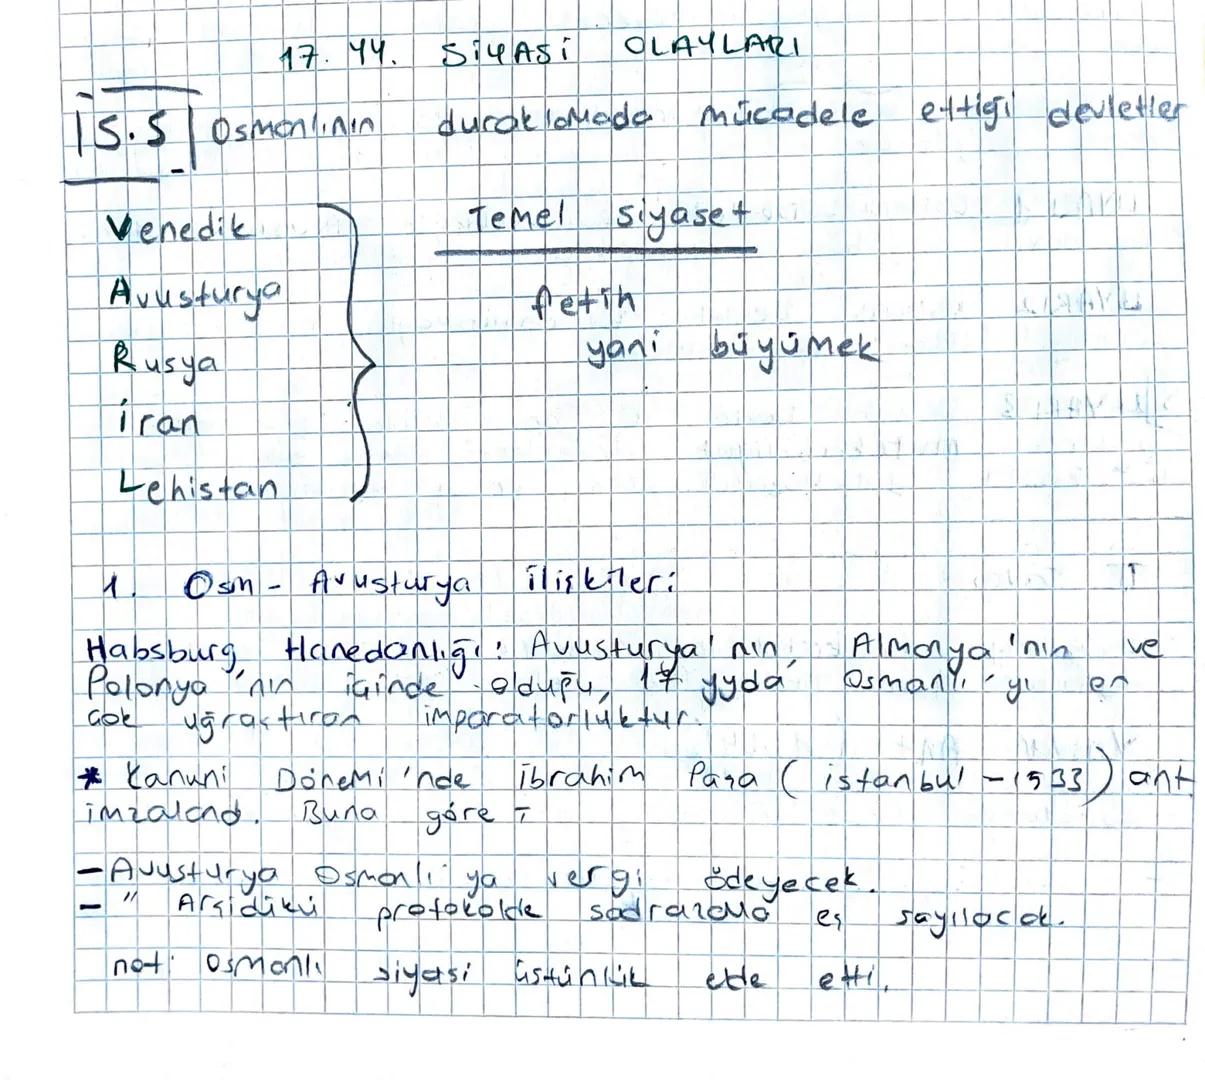 17. YY. SİYASİ OLAYLARI
S.S Osmanlının duraklamada mücadele ettiği devletler
Venedik
Avusturya
Rusya
İran
Lehistan
Temel siyaset
fetih
yani büyümek
1. Osm - Avusturya ilişkileri:
Habsburg Hanedanlığı: Avusturya'nın, Almanya'nın ve
Polonya'nın içinde olduğu, 17 yyda Osmanlı'yı en
çok uğraştıran imparatorluktur.
* Kanuni Dönemi'nde İbrahim Paşa (istanbul - 1533) ant
imzaland. Buna göre ;
- Avusturya Osmanlı ya vergi ödeyecek.
- " Arşidükü protokolde sadrazama eş sayılacak.
not: Osmanlı siyasi üstünlük elde etti.